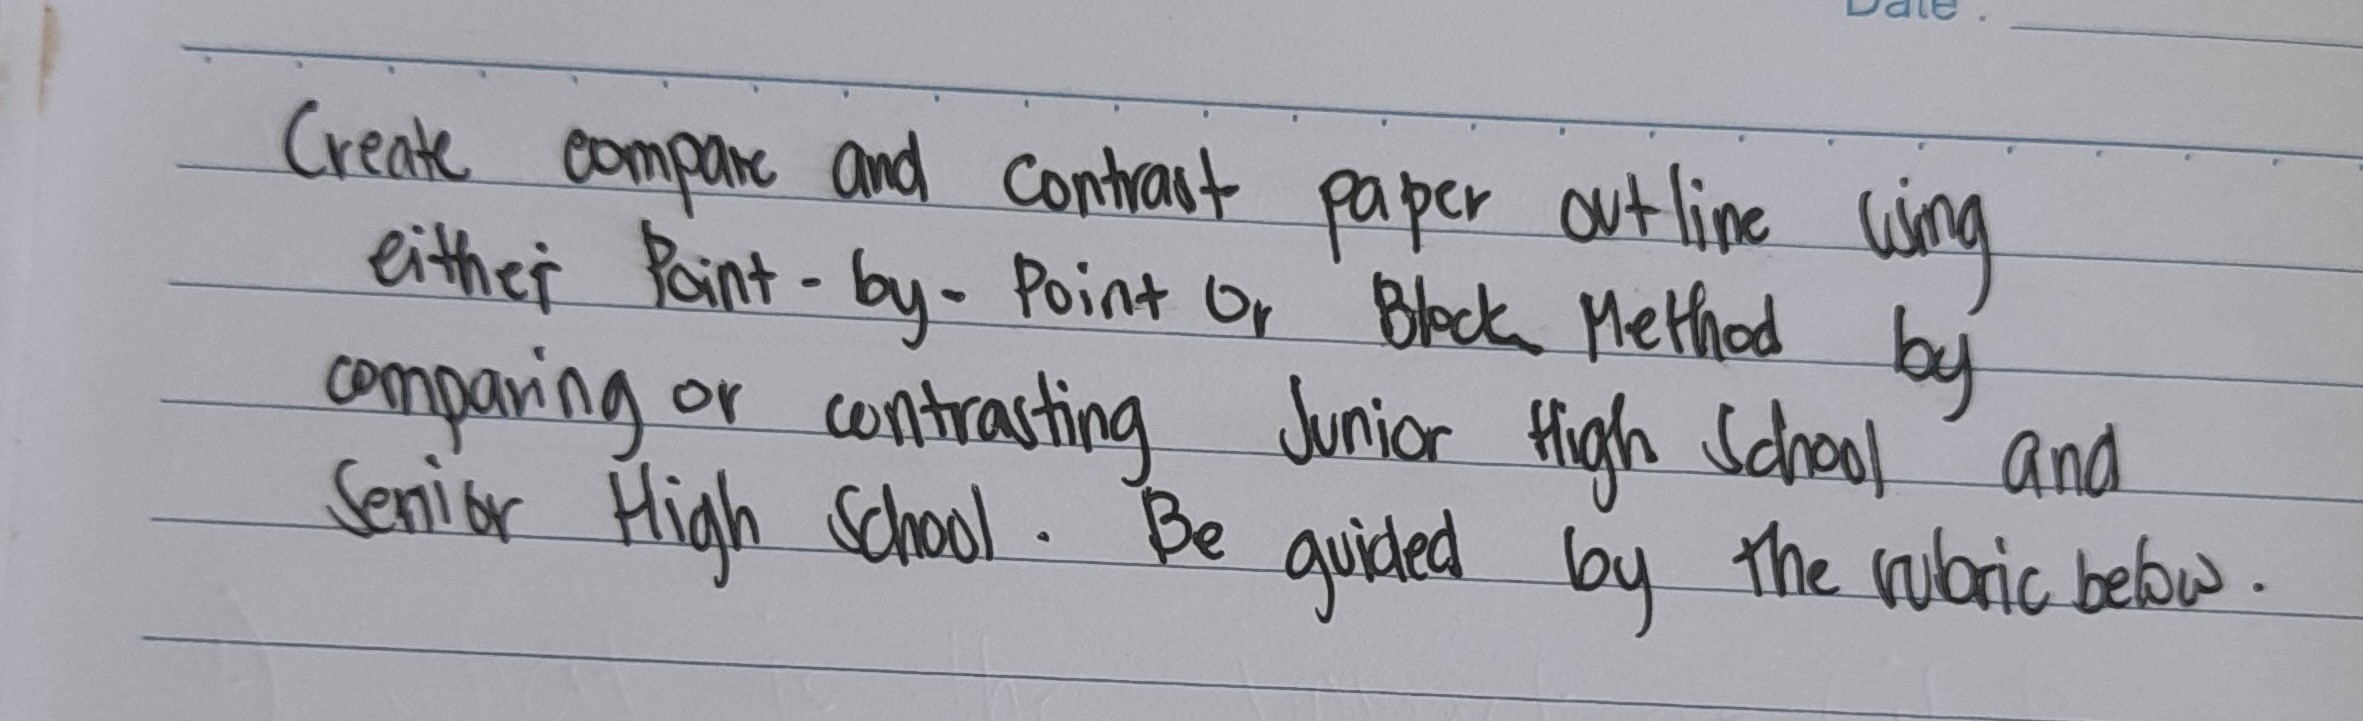 Date.
Create compare and contrast paper outline using
either Point-by-Point or Block Method by
comparing or contrasting Junior High School and
Senior High School. Be guided by the rubric below.